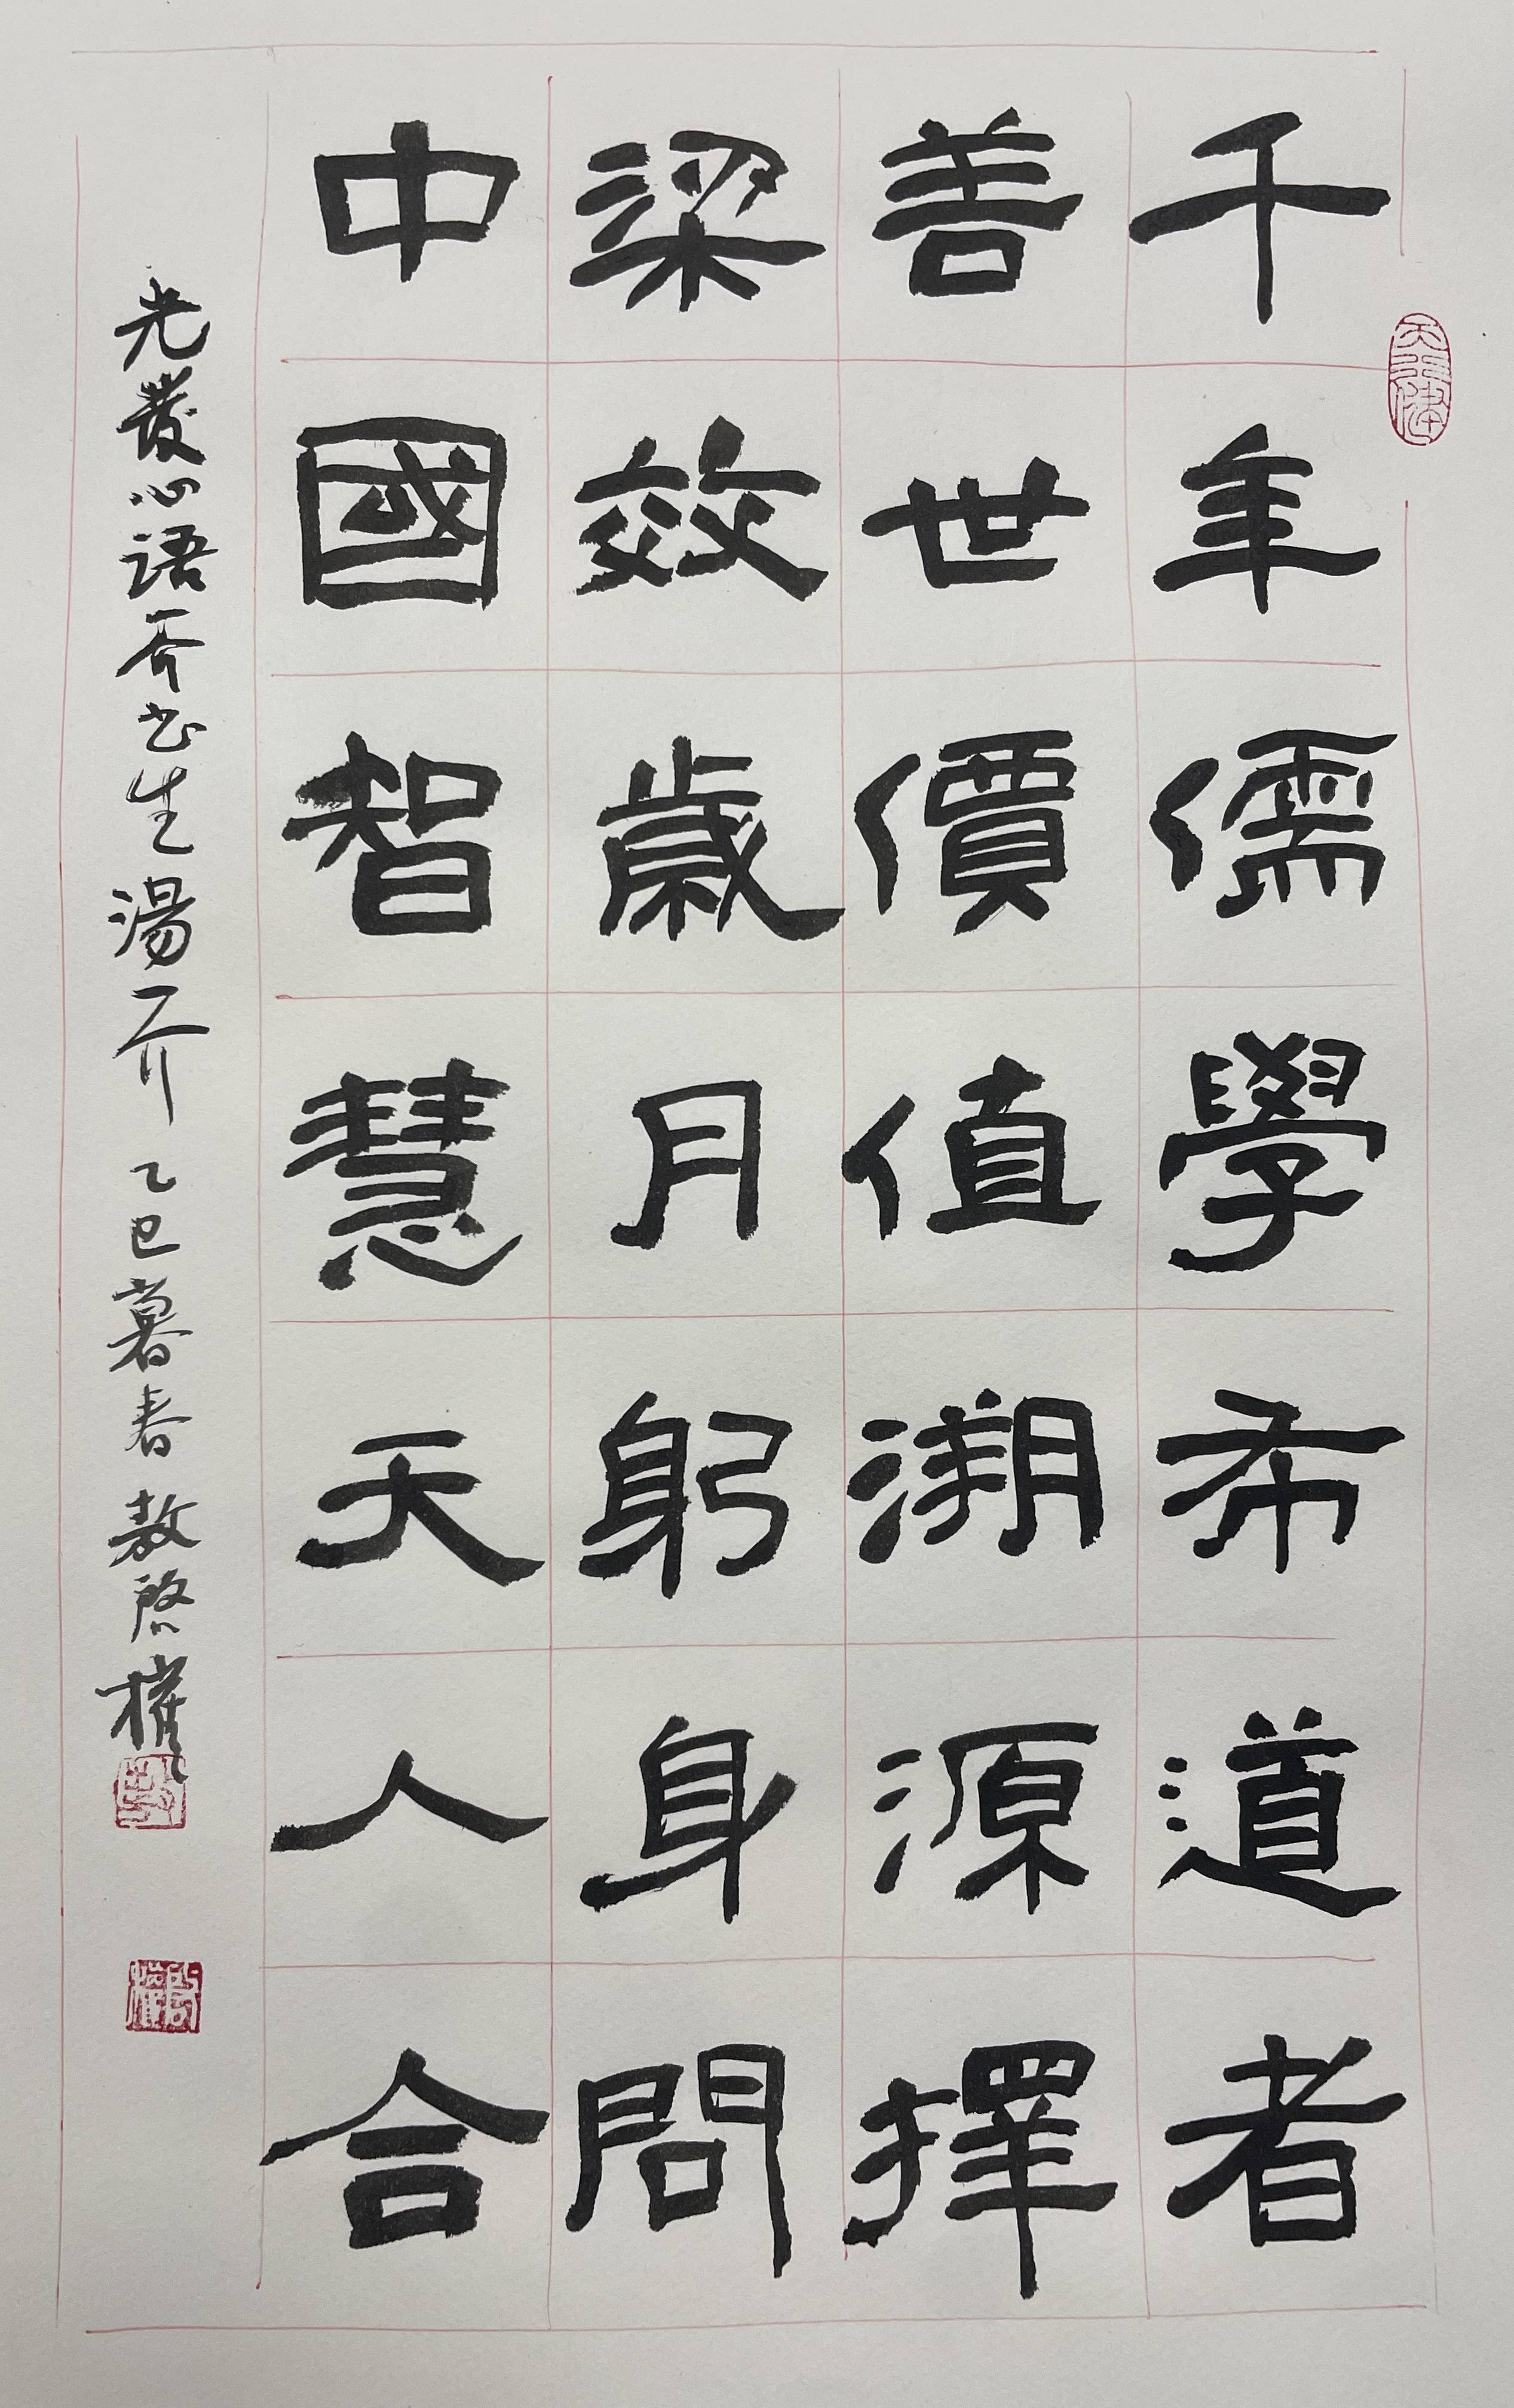 千年儒學希道者
善世價值溯源擇
梁效歲月躬身問
中國智慧天人合
光發心語 介书生湯介 乙巳暮春 敖啓權
啓權